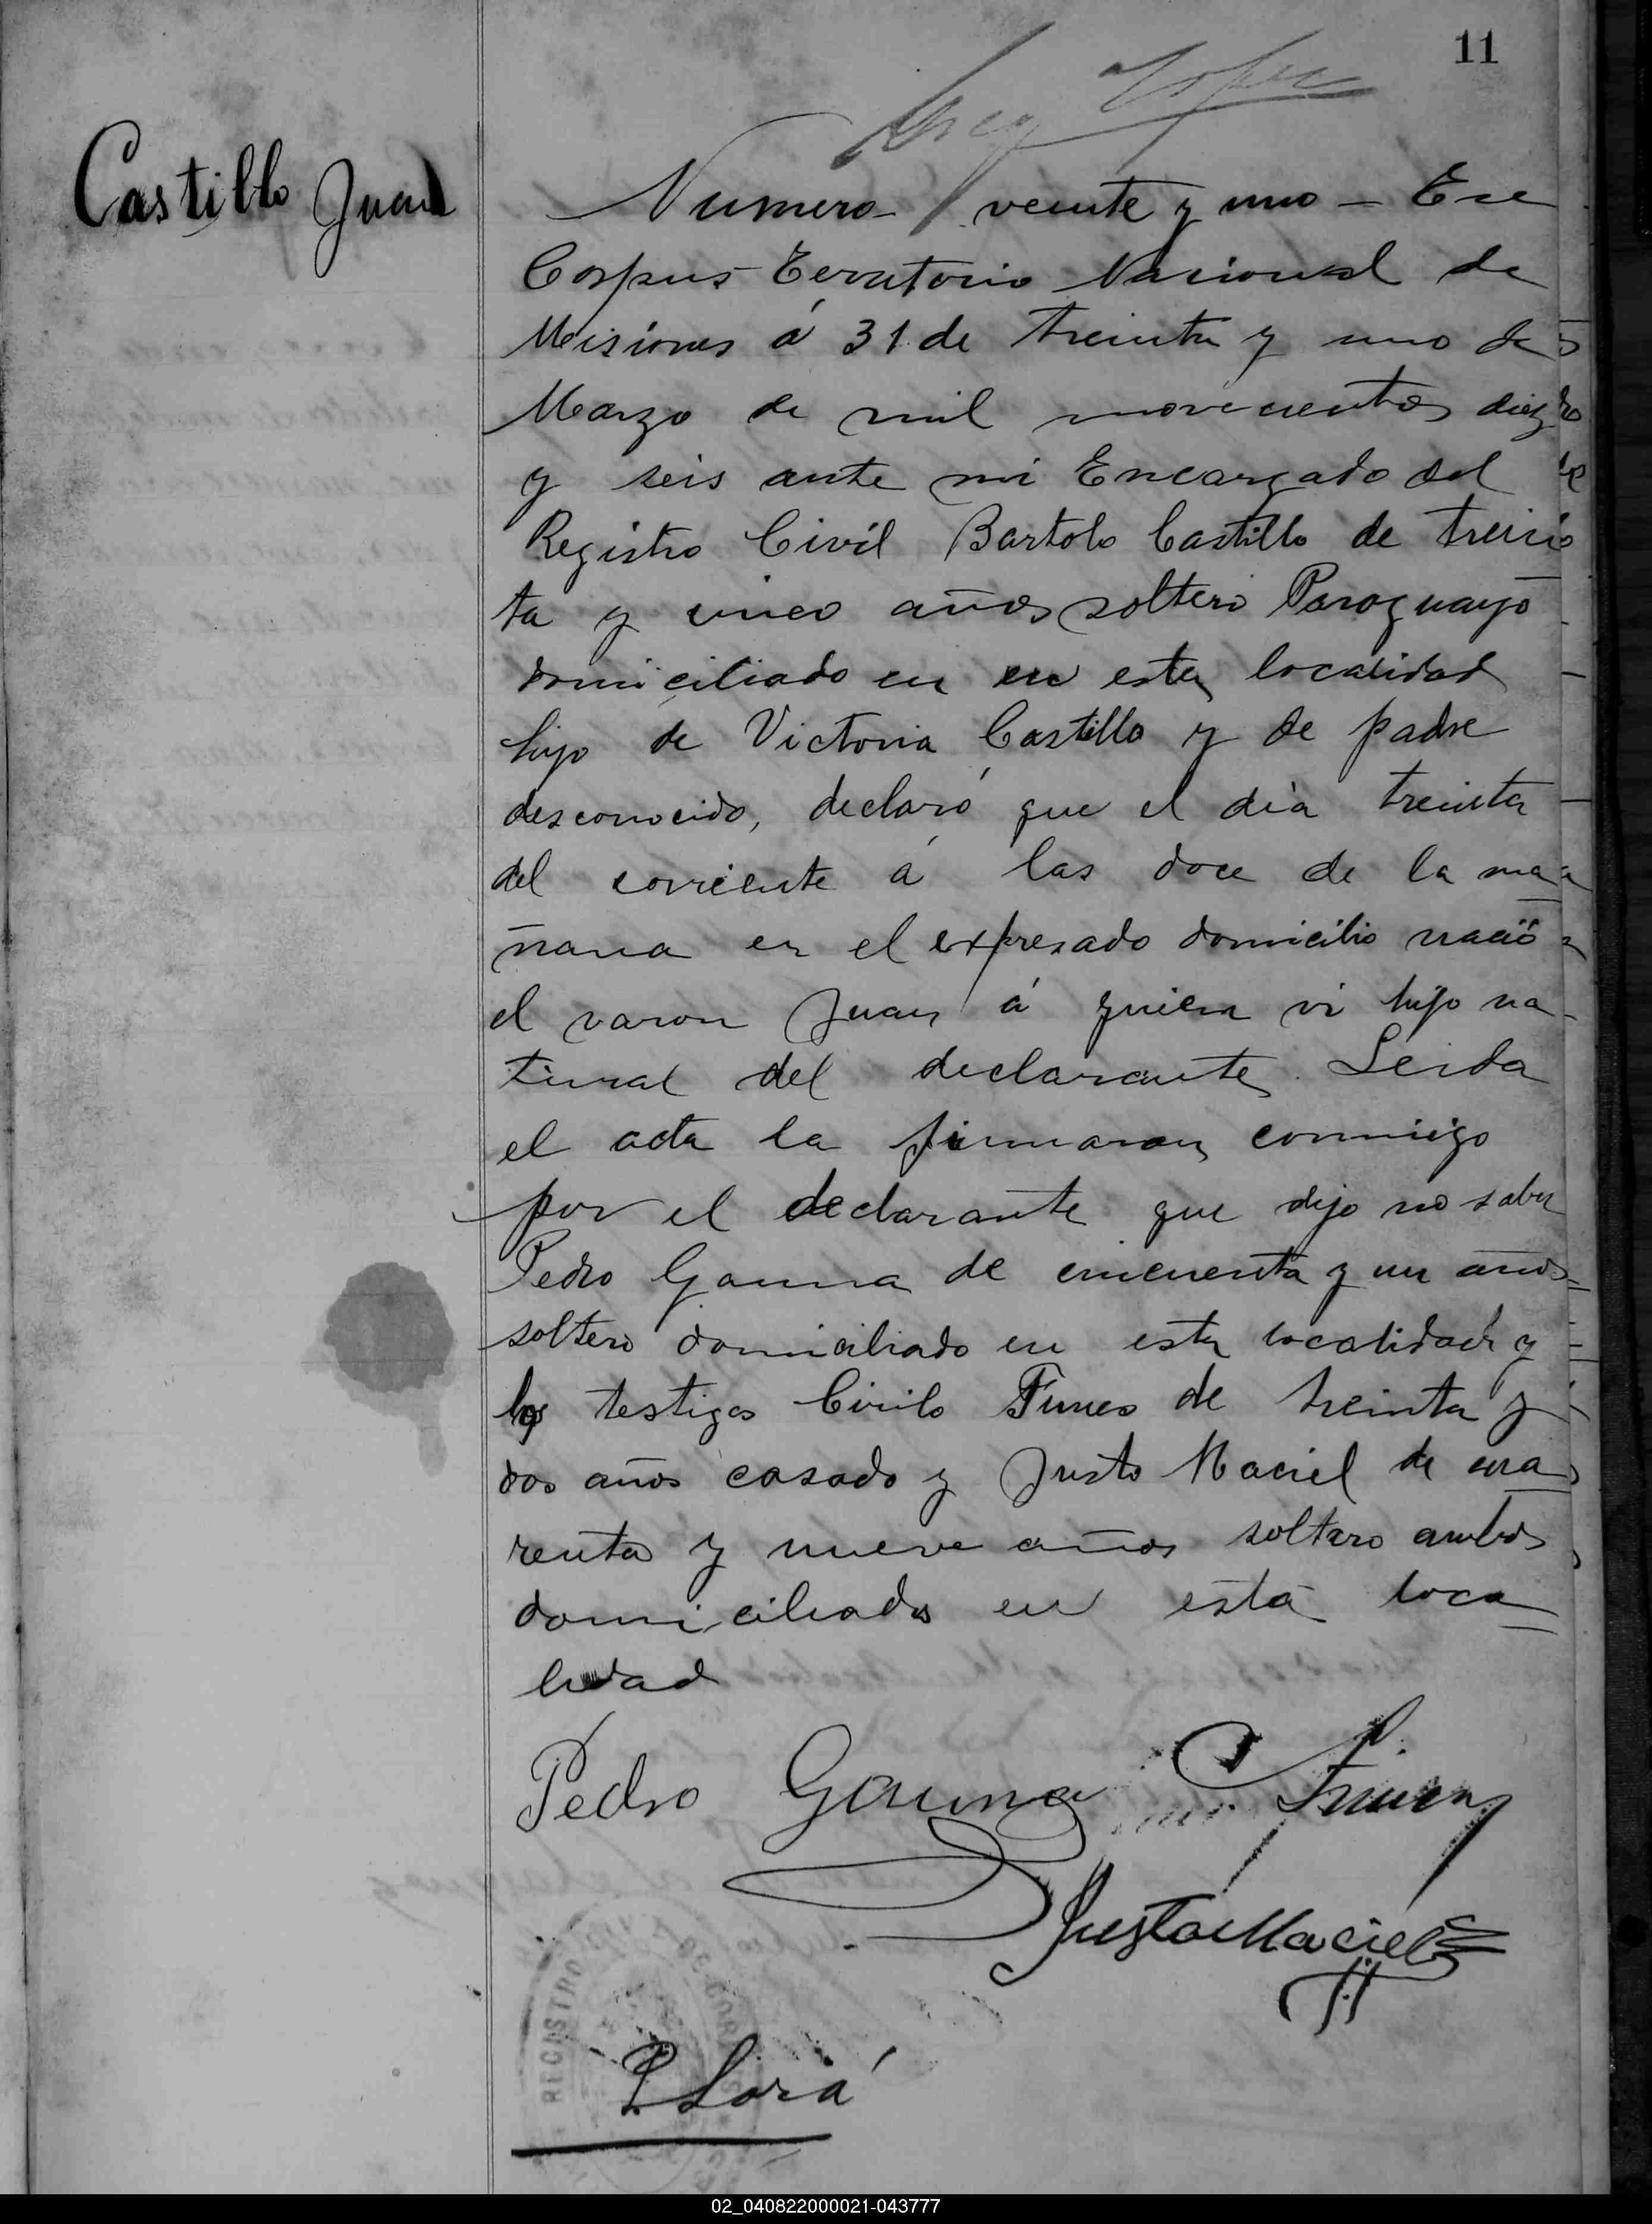 11
Castillo Juan
Numero veinte y uno - En
Corpus Territorio Nacional de
Misiones á 31 de treinta y uno de
Marzo de mil novecientos diez
y seis ante mi Encargado del
Registro Civil Bartolo Castillo de trein
ta y cinco años soltero Paraguayo
domiciliado en en esta localidad
hijo de Victoria Castillo y de padre
desconocido, declaró que el dia treinta
del corriente á las doce de la ma
ñana en el expresado domicilio nació
el varon Juan á quien vi hijo na
tural del declarante. Leida
el acta la firmaron conmigo
por el declarante que dijo no saber
Pedro Gauna de cincuenta y un años
soltero domiciliado en esta localidad y
los testigos Cirilo Funes de treinta y
dos años casado y Justo Maciel de cua
renta y nueve años soltero ambos
domiciliados en esta loca
lidad
Pedro Gauna C Funes
Justo Maciel
REGISTRO
P Lorá
02_040822000021-043777